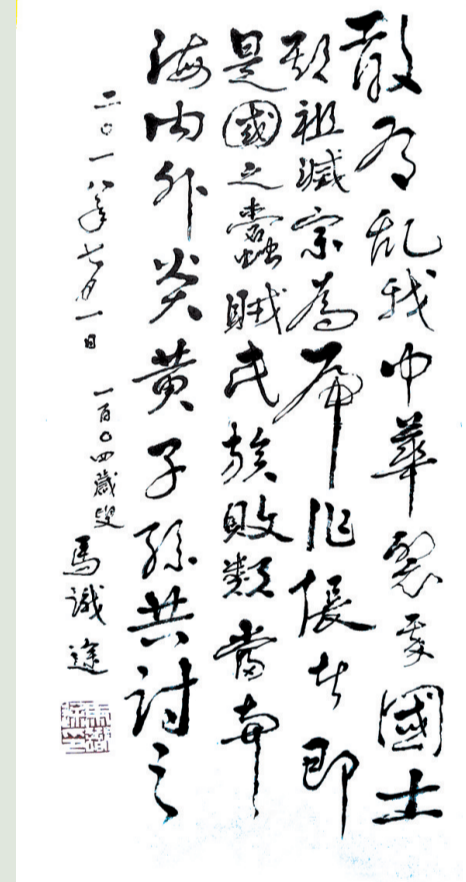 敢有乱我中華裂國土
欺祖滅宗為虎作倀者即
是國之蠹賊民族敗類當
海内外炎黄子孫共討之
二〇一八年七月一日 一百〇四歲叟 馬識途